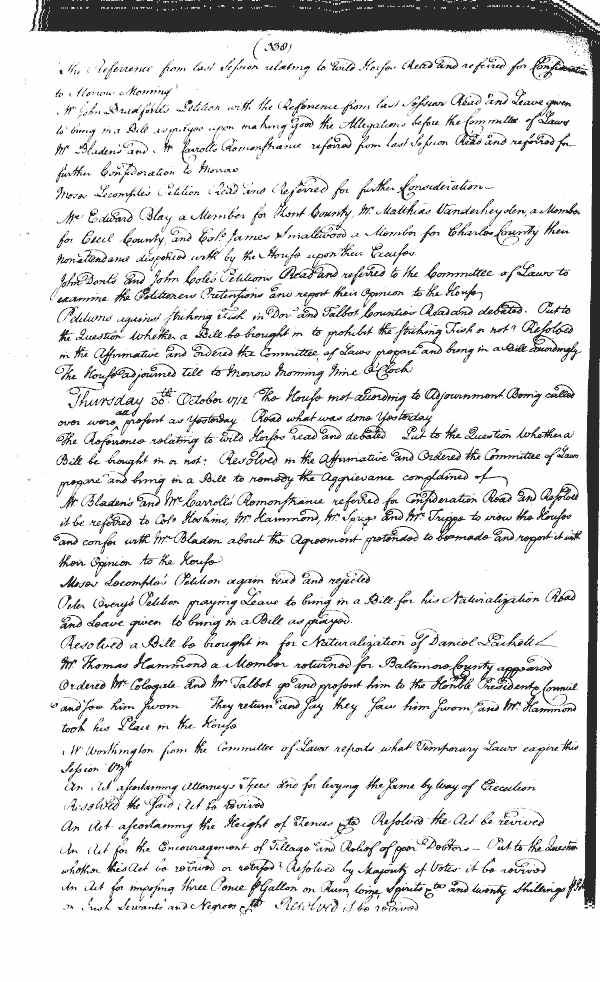 (338)
The Reference from last Session relating to Wild Horses Read and referred for Consideration
to Morrow Morning
Mr John Bradford's Petition with the Reference from last Session Read and Leave given
to bring in a Bill as prayes upon making good the Allegations before the Committee of Laws
Mr Bladen's and Mr Carroll's Remonstrance referred from last Session Read and referred for
further Consideration to Morrow
Moses Lecompte's Petition Read and Referred for further Consideration
Mr Edward Blay a Member for Kent County, Mr Matthias Vanderheyden, a Member
for Cecil County, and Colo James Smallwood a Member for Charles County their
nonattendance dispenced with by the House upon their Excuses
John Dent's and John Cole's Petitions Read and referred to the Committee of Laws to
examine the Petitioners Pretensions and report their Opinion to the House
Petitions against striking Fish in Dor and Talbot Counties Read and debated. Put to
the Question whether a Bill be brought in to prohibit the striking Fish or not? Resolved
in the Affirmative and ordered the Committee of Laws prepare and bring in a Bill accordingly
The House adjourned till to Morrow Morning Nine o'Clock
Thursday 30th October 1712 The House met according to Adjournment Being called
over were all present as Yesterday Read what was done Yesterday
The Reference relating to Wild Horses read and debated Put to the Question whether a
Bill be brought in or not? Resolved in the Affirmative and Ordered the Committee of Laws
prepare and bring in a Bill to remedy the Aggrievance complained of
Mr Bladen's and Mr Carroll's Remonstrance referred for Consideration Read and Resolved
it be referred to Colo Hoskins, Mr Hammond, Mr Sprigg and Mr Trippe to view the Houses
and confer with Mr Bladen about the Agreement pretended to be made and report it with
their Opinion to the House
Moses Lecompte's Petition again read and rejected
Peter Overy's Petition praying Leave to bring in a Bill for his Naturalization Read
and Leave given to bring in a Bill as prayed.
Resolved a Bill be brought in for Naturalization of Daniel
Mr Thomas Hammond a Member returned for Baltimore County appeared
Ordered Mr Colegate and Mr Talbot go and present him to the Honble President & Council
and see him sworn They return and say they saw him sworn, and Mr Hammond
took his Place in the House
Mr Worthington from the Committee of Laws reports what Temporary Laws expire this
Session Vizt
An Act ascertaining Attorneys Fees and for levying the same by Way of Execution
Resolved the said Act be revived
An Act ascertaining the Height of Fences &ca Resolved the Act be revived
An Act for the Encouragement of Tillage and Relief of poor Debtors - Put to the Question
whether this Act be revived or revised? Resolved by Majority of Votes it be revived
An Act for imposing three Pence p Gallon on Rum, Wine Spirits &ca and twenty Shillings p
on Irish Servants and Negroes &ca Resolved it be revived